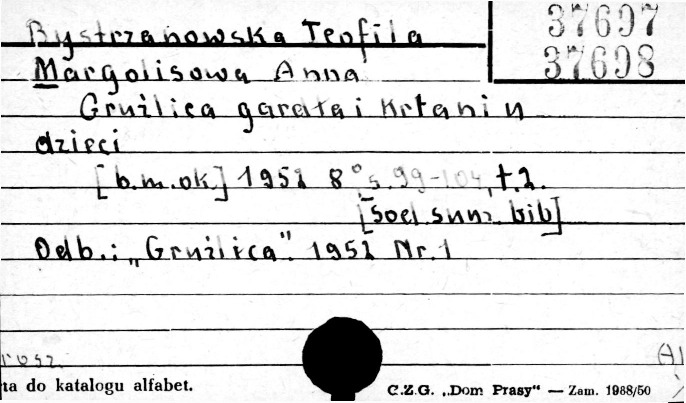 Bystrzanowska Teofila
37697
Margolisowa Anna
37698
Gruźlica gardła i krtani u
dzieci
[b.m.ok.] 1952 8° s. 99-104, t.2.
bib]
Odb.: „Gruźlica”. 1952 Nr. 1
rosz.
ta do katalogu alfabet.
C.Z.G. „Dom Prasy” — Zam. 1988/50